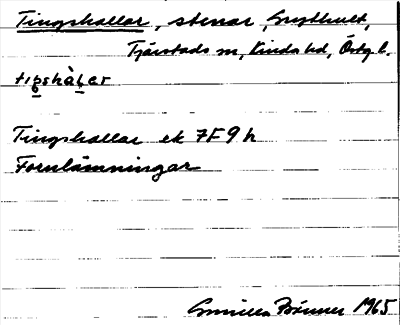 Tingshallar, stenar, Grythult,
Tjärstads sn, Kinda hd, Östg. l.
Tingshallar ek 7F9h
Fornlämningar
Gunilla Bönner 1965